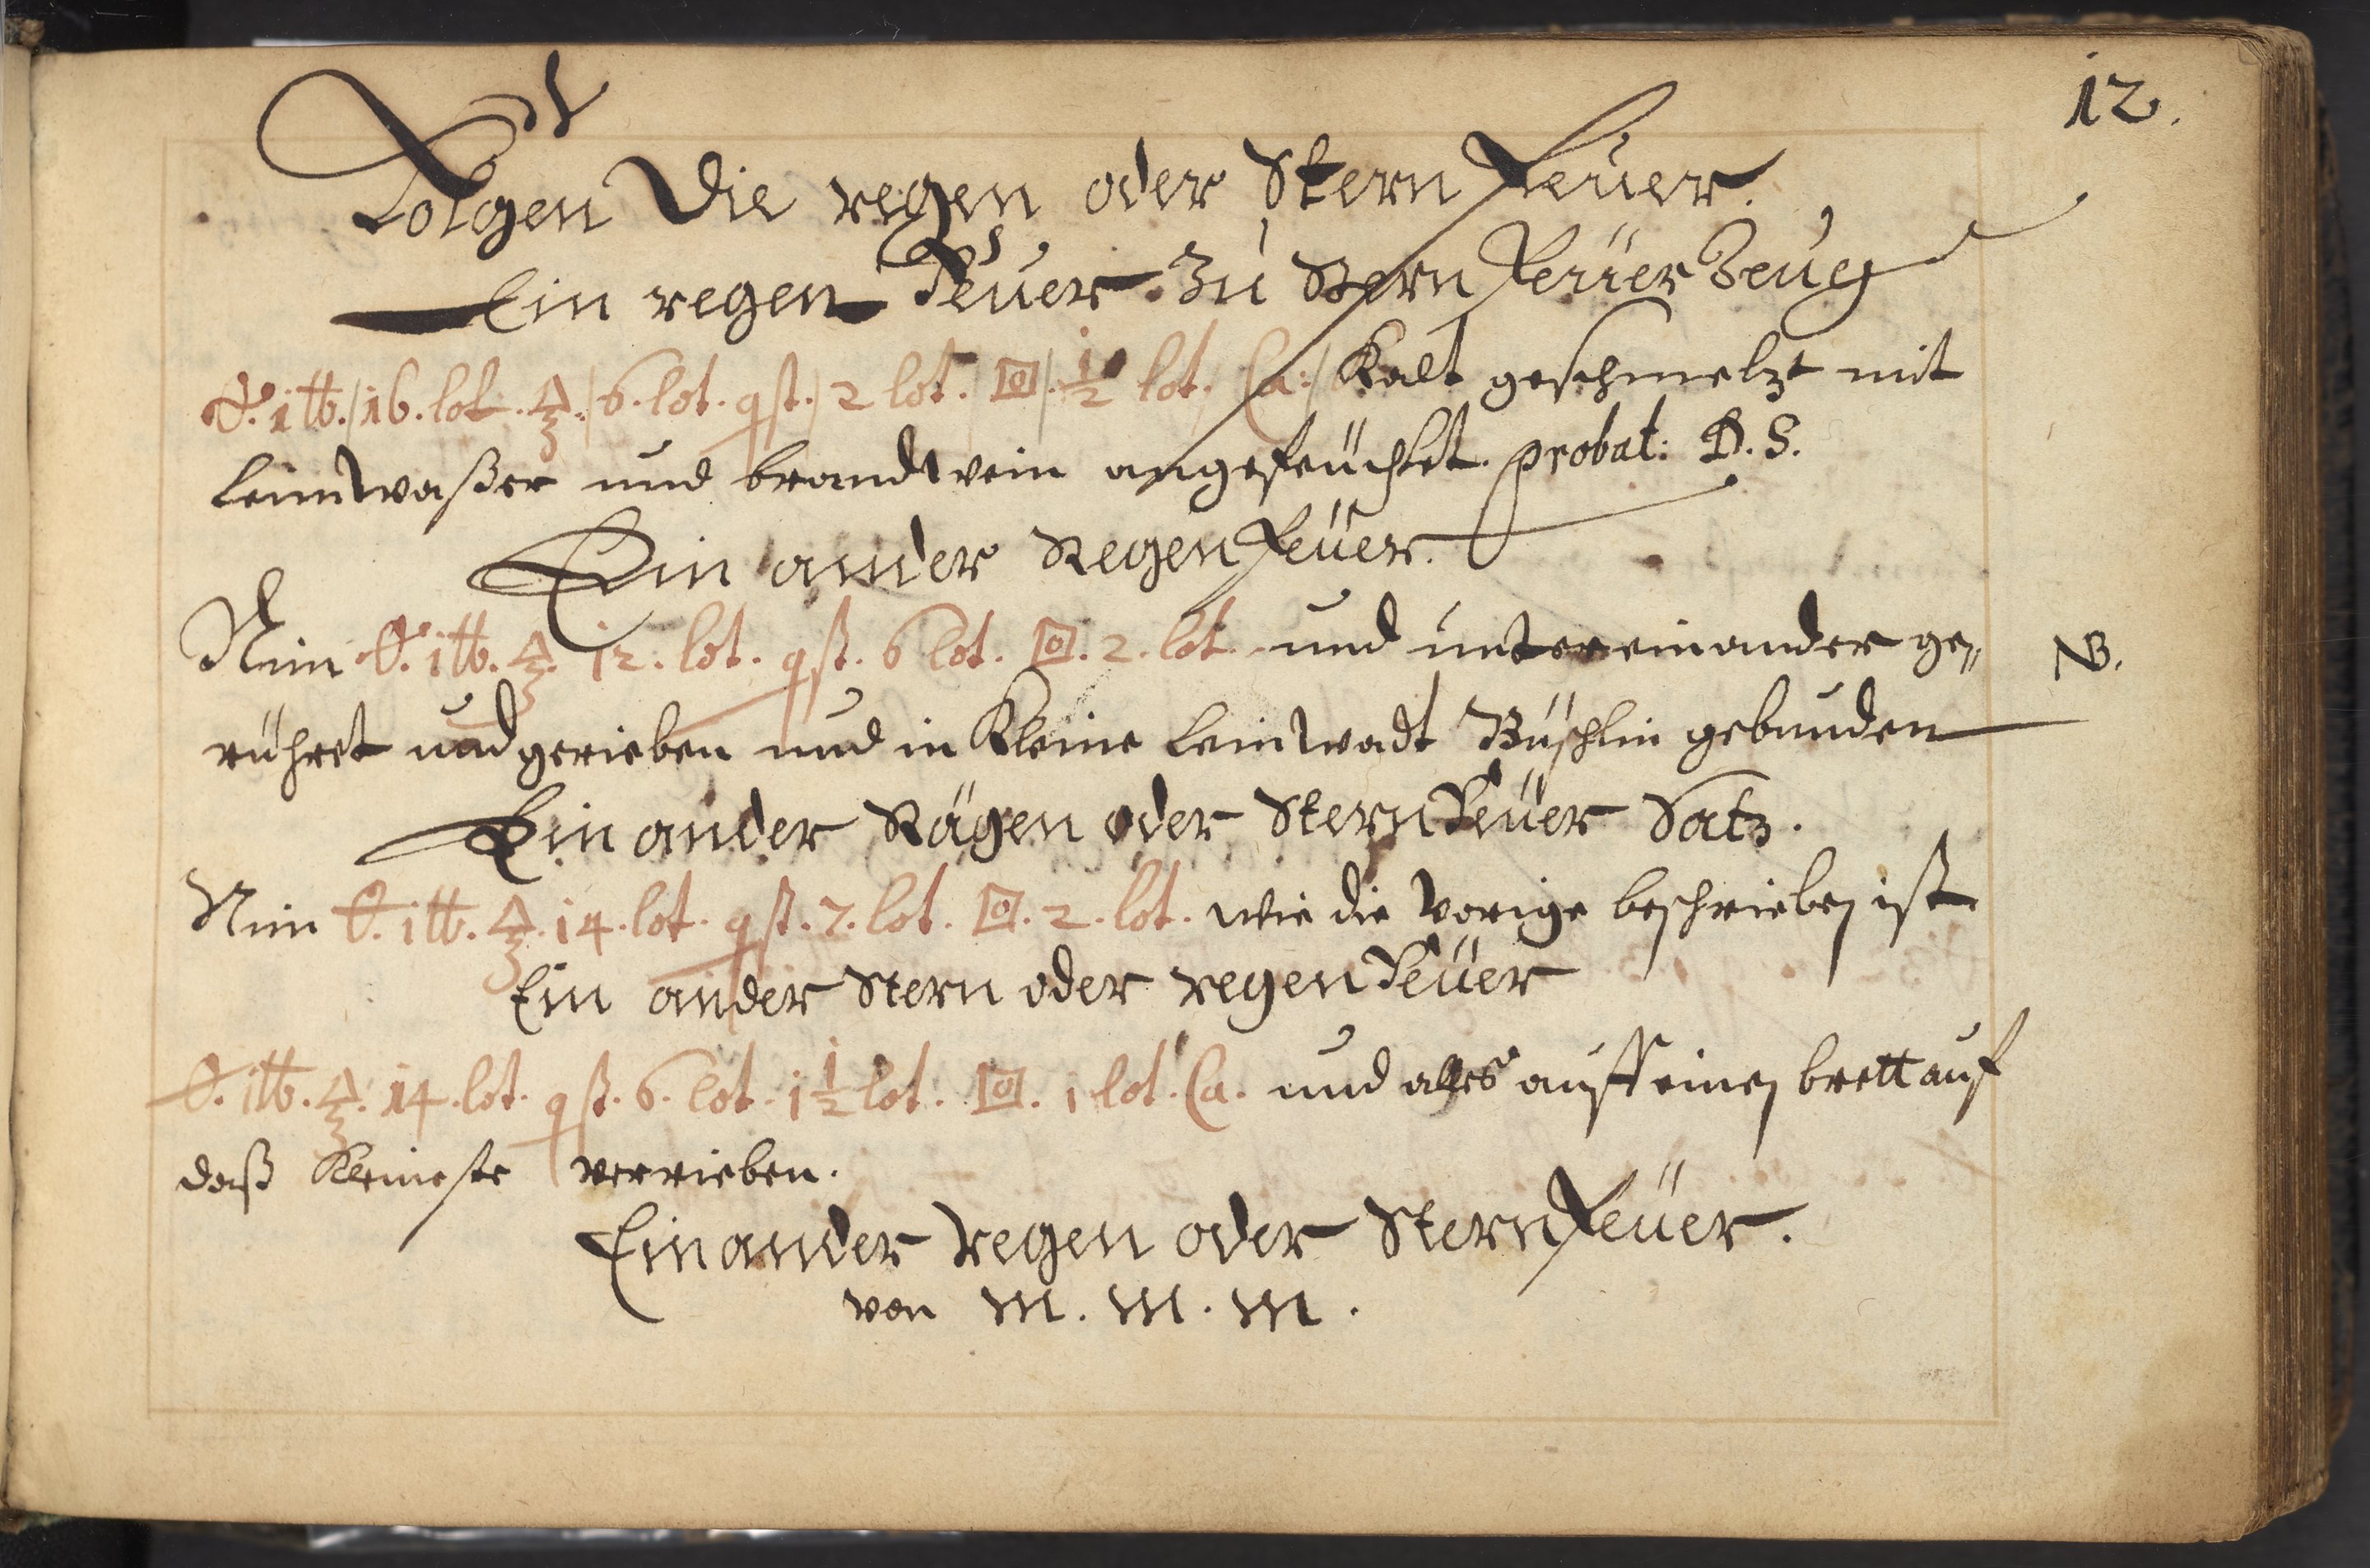 12.
Folgen Die regen oder Stern Feuer.
Ein regen Feuer. Zu Stern Feuer Zeug
1 ℔. / 16. lot. / 6. lot. q st. / 2 lot. / ½ lot. Ca: / Kalt geschmeltzt mit
leimwaßer und brandtwein angefeüchtet. probat: D. S.
Ein ander Regen Feüer.
Nim 1 ℔. 12. lot. q st. 6 lot. 2. lot. und untereinander ge„
NB.
rühret und gerieben und in Kleine leinwadt Büschlin gebunden
Ein ander Rägen oder Stern Feüer Satz.
Nim 1 ℔. 14. lot. q st. 7. lot. 2. lot. wie die Vorige beschrieben ist
Ein ander Stern oder regen Feüer
1 ℔. 14. lot. q st. 6. lot. 1 ½ lot. 1 lot. Ca. und alles auff einen brett auf
daß Kleineste verrieben.
Ein ander regen oder Stern Feüer.
von M. M. M.